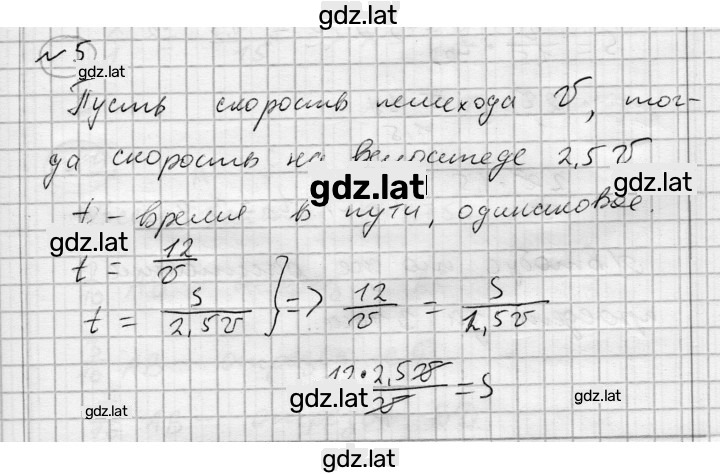 gdz.lat
№ 5
gdz.lat
Пусть скорость пешехода v, тог-
да скорость на велосипеде 2,5 v
gdz.lat
gdz.lat
t - время в пути, одинаковое.
gdz.lat
t = 12/v
t = S/2,5v } => 12/v = S/2,5v
12·2,5v/v = S
gdz.lat
gdz.lat
gdz.lat
gdz.lat